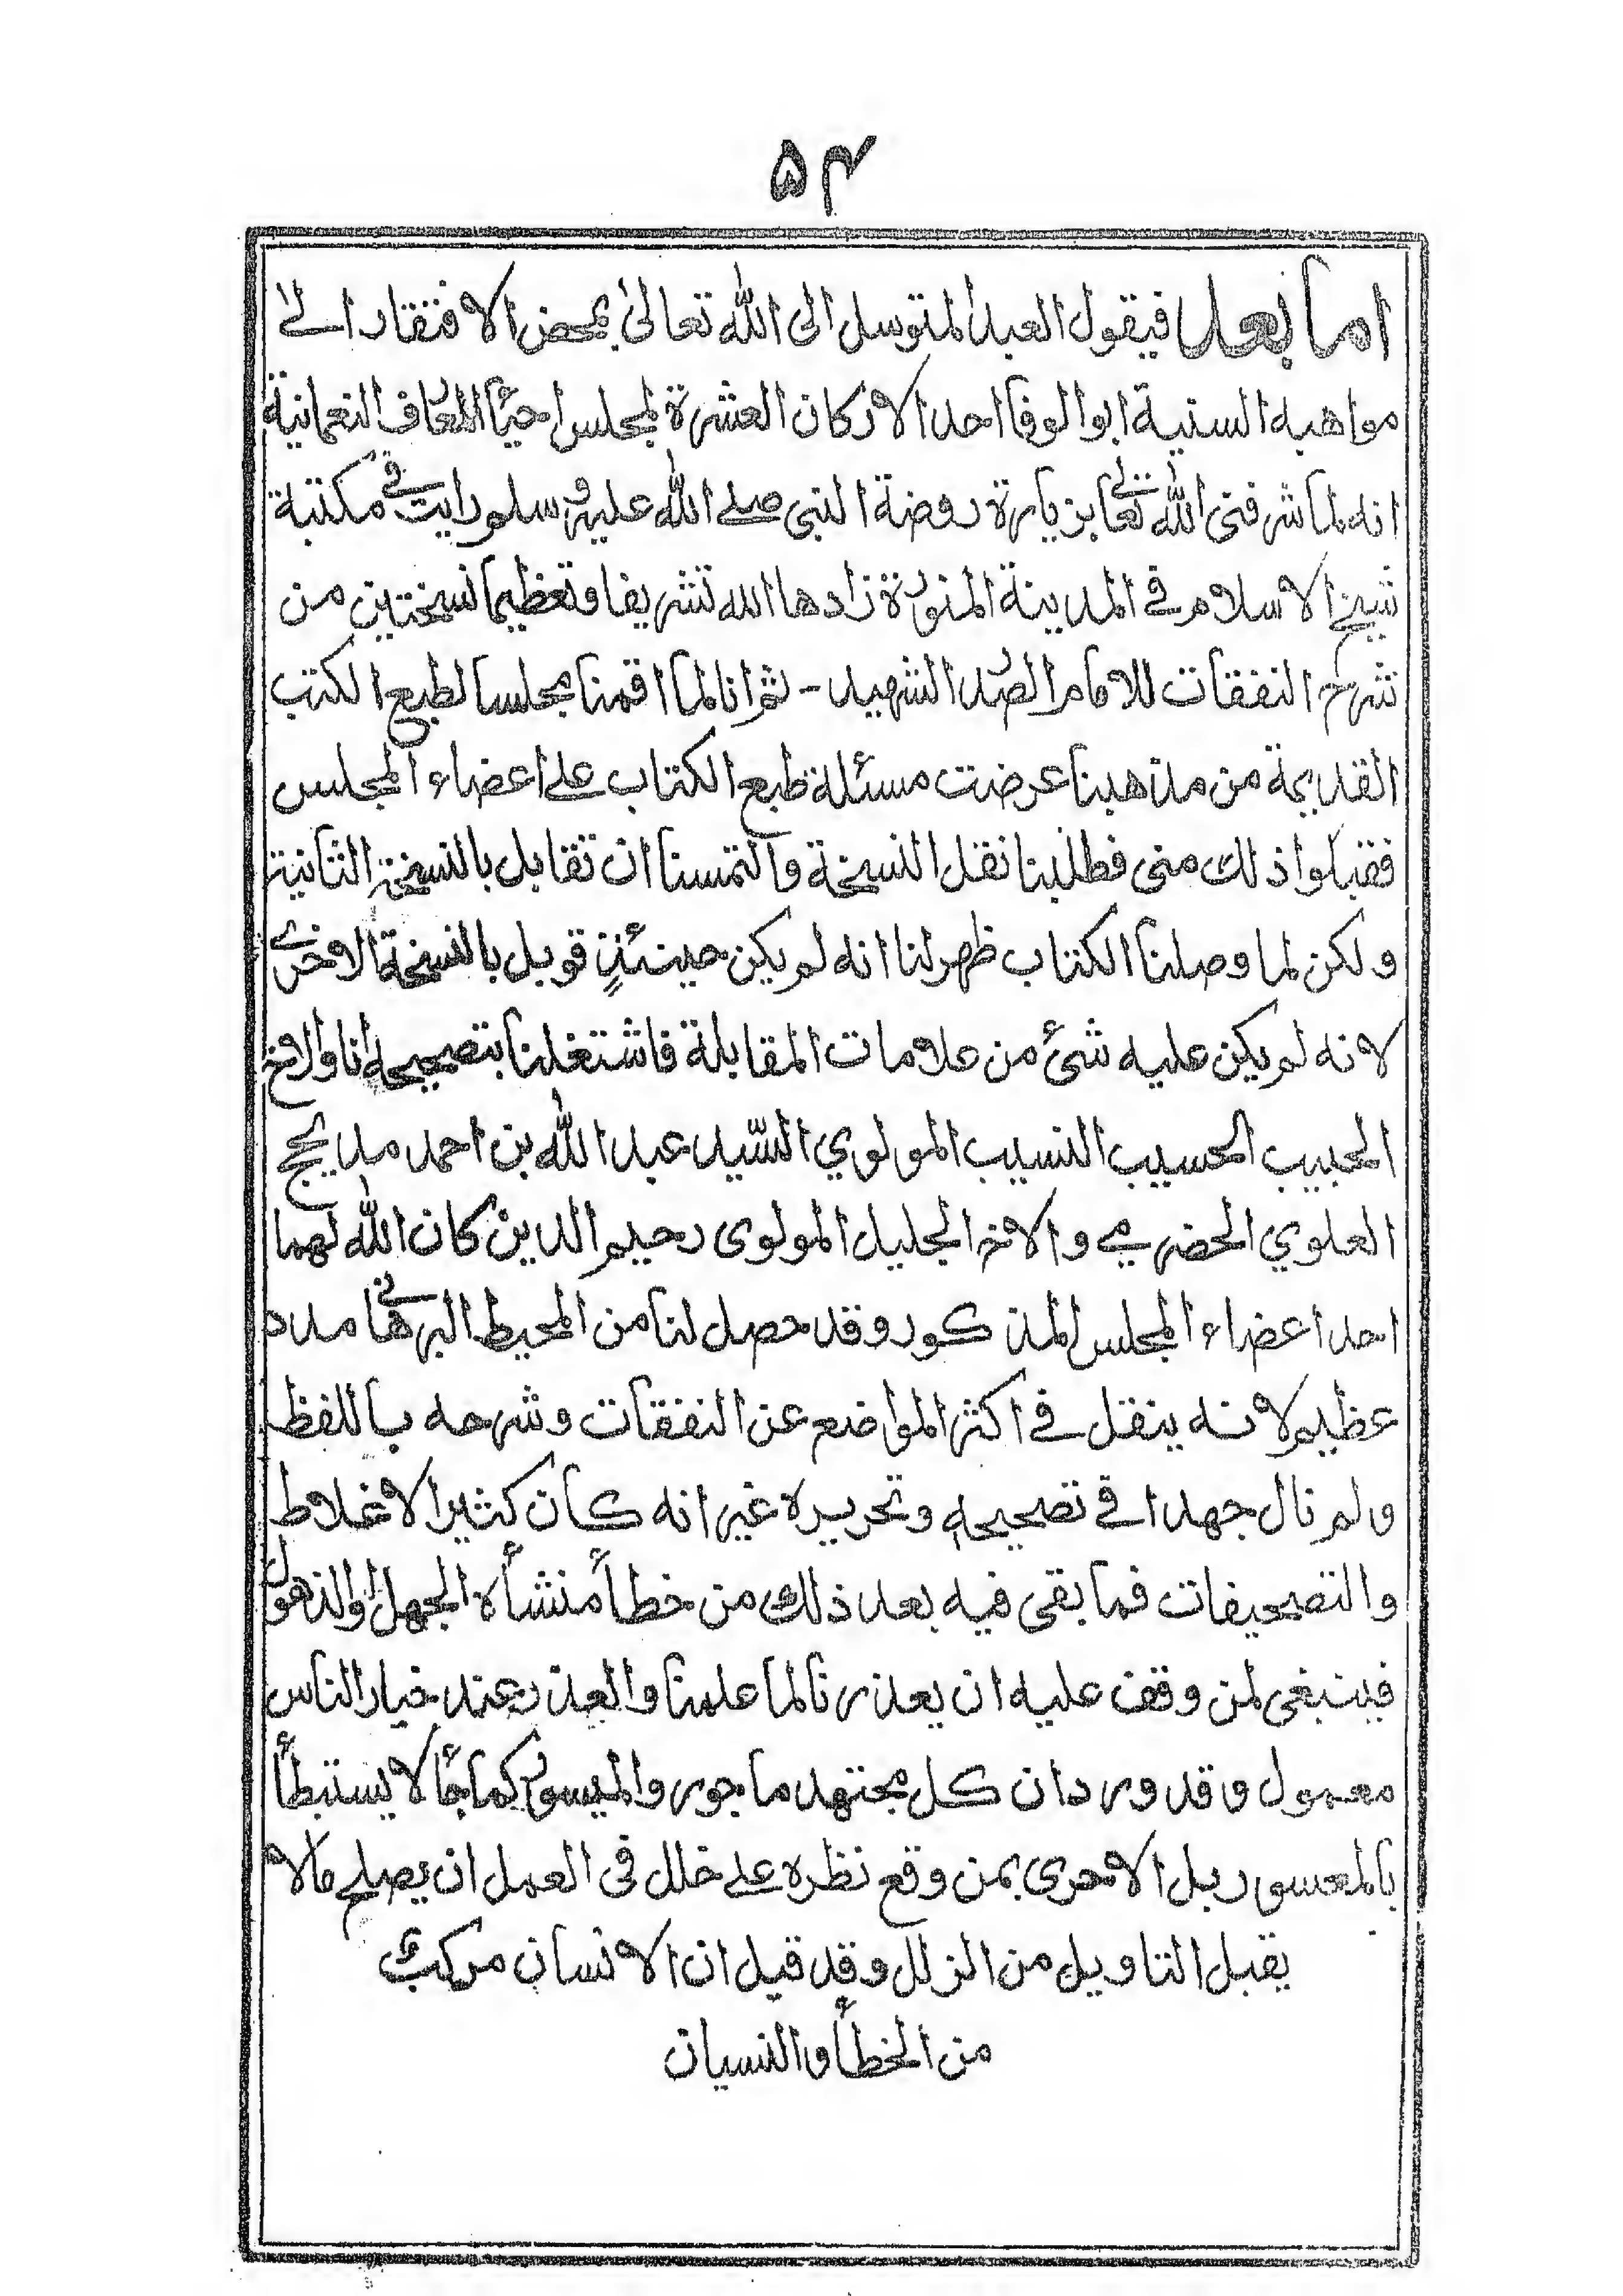 ۵۴
اما بعد فيقول العبد المتوسل الى الله تعالىٰ بمحض الافتقار الے
مواهبه السنية ابو الوفا احد الاركان العشرة لمجلس احياء المعارف النعمانية
انه لما شرفنى الله تعالے بزيارة روضة النبى صلے الله عليه و سلم رايت فے مكتبة
شيخ الاسلام فے المدينة المنورة زادها الله تشريفا وتعظيما نسختين من
شرح النفقات للامام الصدر الشهيد - ثم انا لما اقمنا مجلسا لطبع الكتب
القديمة من مذهبنا عرضت مسئلة طبع الكتاب علے اعضاء المجلس
فقبلوا ذلك منى فطلبنا نقل النسخة والتمسنا ان تقابل بالنسخة الثانية
ولكن لما وصلنا الكتاب ظهر لنا انه لم يكن حينئذٍ قوبل بالنسخة الاخرے
لانه لم يكن عليه شئ من علامات المقابلة فاشتغلنا بتصحيحه انا والاخ
المحبيب الحسيب النسيب المولوي السّيد عبد الله بن احمد مديحج
العلوي الحضرمے والاخ الجليل المولوى رحيم الدين كان الله لهما
احد اعضاء المجلس المذكور وقد حصل لنا من المحيط البرهانے مدد
عظيم لانه ينقل فے اكثر المواضع عن النفقات وشرحه باللفظ
ولم نال جهدا فے تصحيحه وتحريره غير انه كان كثير الاغلاط
والتصحيفات فما بقى فيه بعد ذلك من خطأ منشأه الجهل او الذهول
فينبغى لمن وقف عليه ان يعذرنا لما علمنا والعذر عند خيار الناس
معمول وقد ورد ان كل مجتهد ماجور والميسور كما جاء لا يستبطأ
بالمعسور بل الاحرى بمن وقع نظره علے خلل فى العمل ان يصلح مالا
يقبل التاويل من الزلل وقد قيل ان الانسان مركب
من الخطأ والنسيان